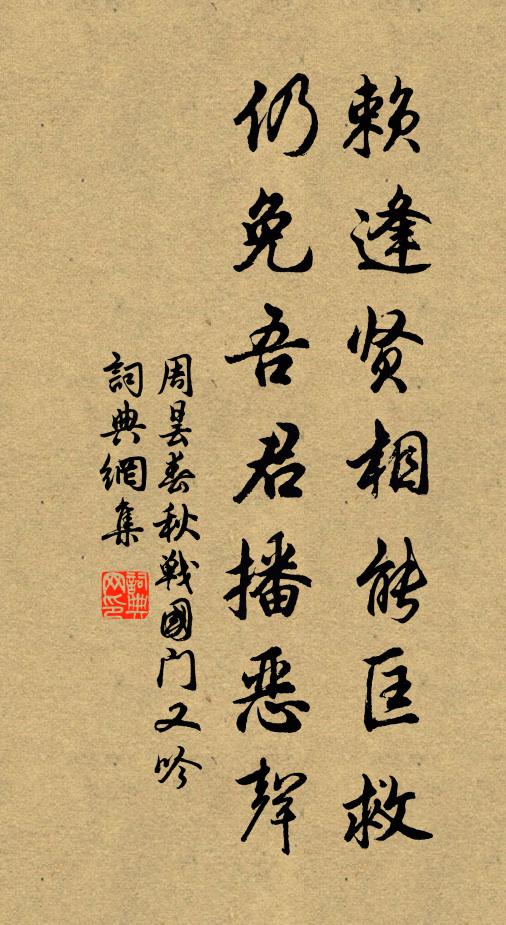 赖逢贤相能匡救
仍免吾君播恶声
周昙春秋戰國门又吟
詞典網集
詞典网印